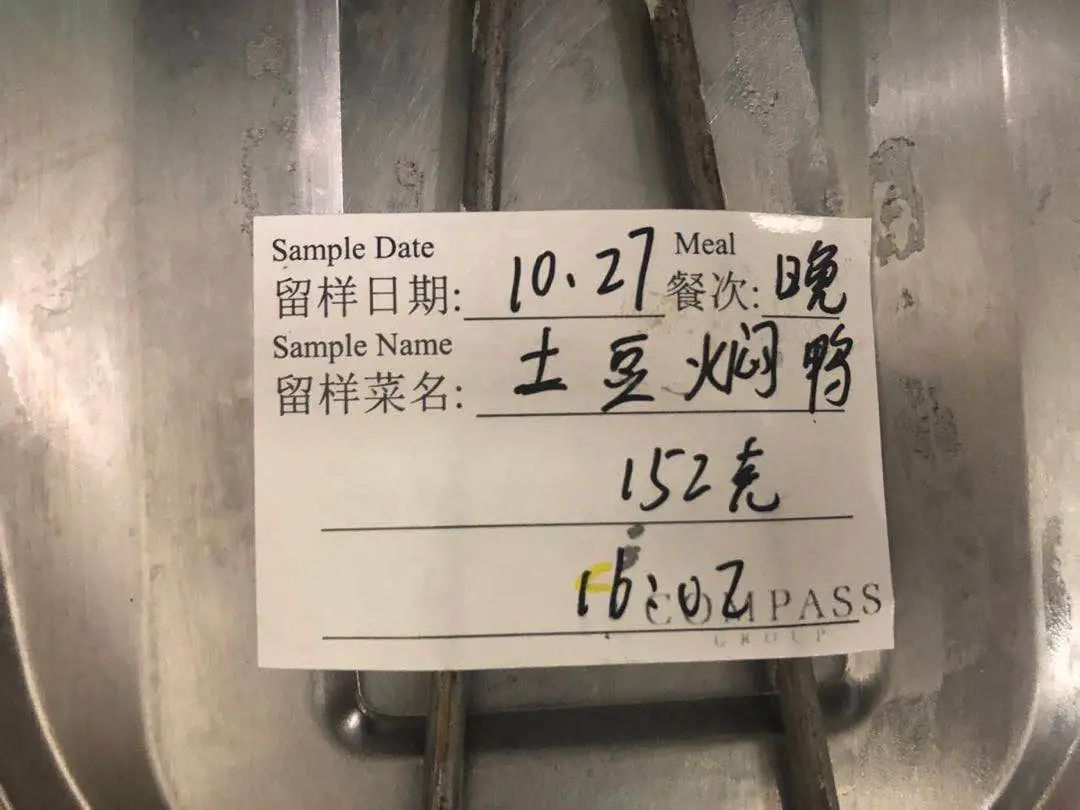 Sample Date Meal
留样日期: 10.27 餐次: 晚
Sample Name
留样菜名: 土豆焖鸭
152克
16:02
COMPASS
GROUP